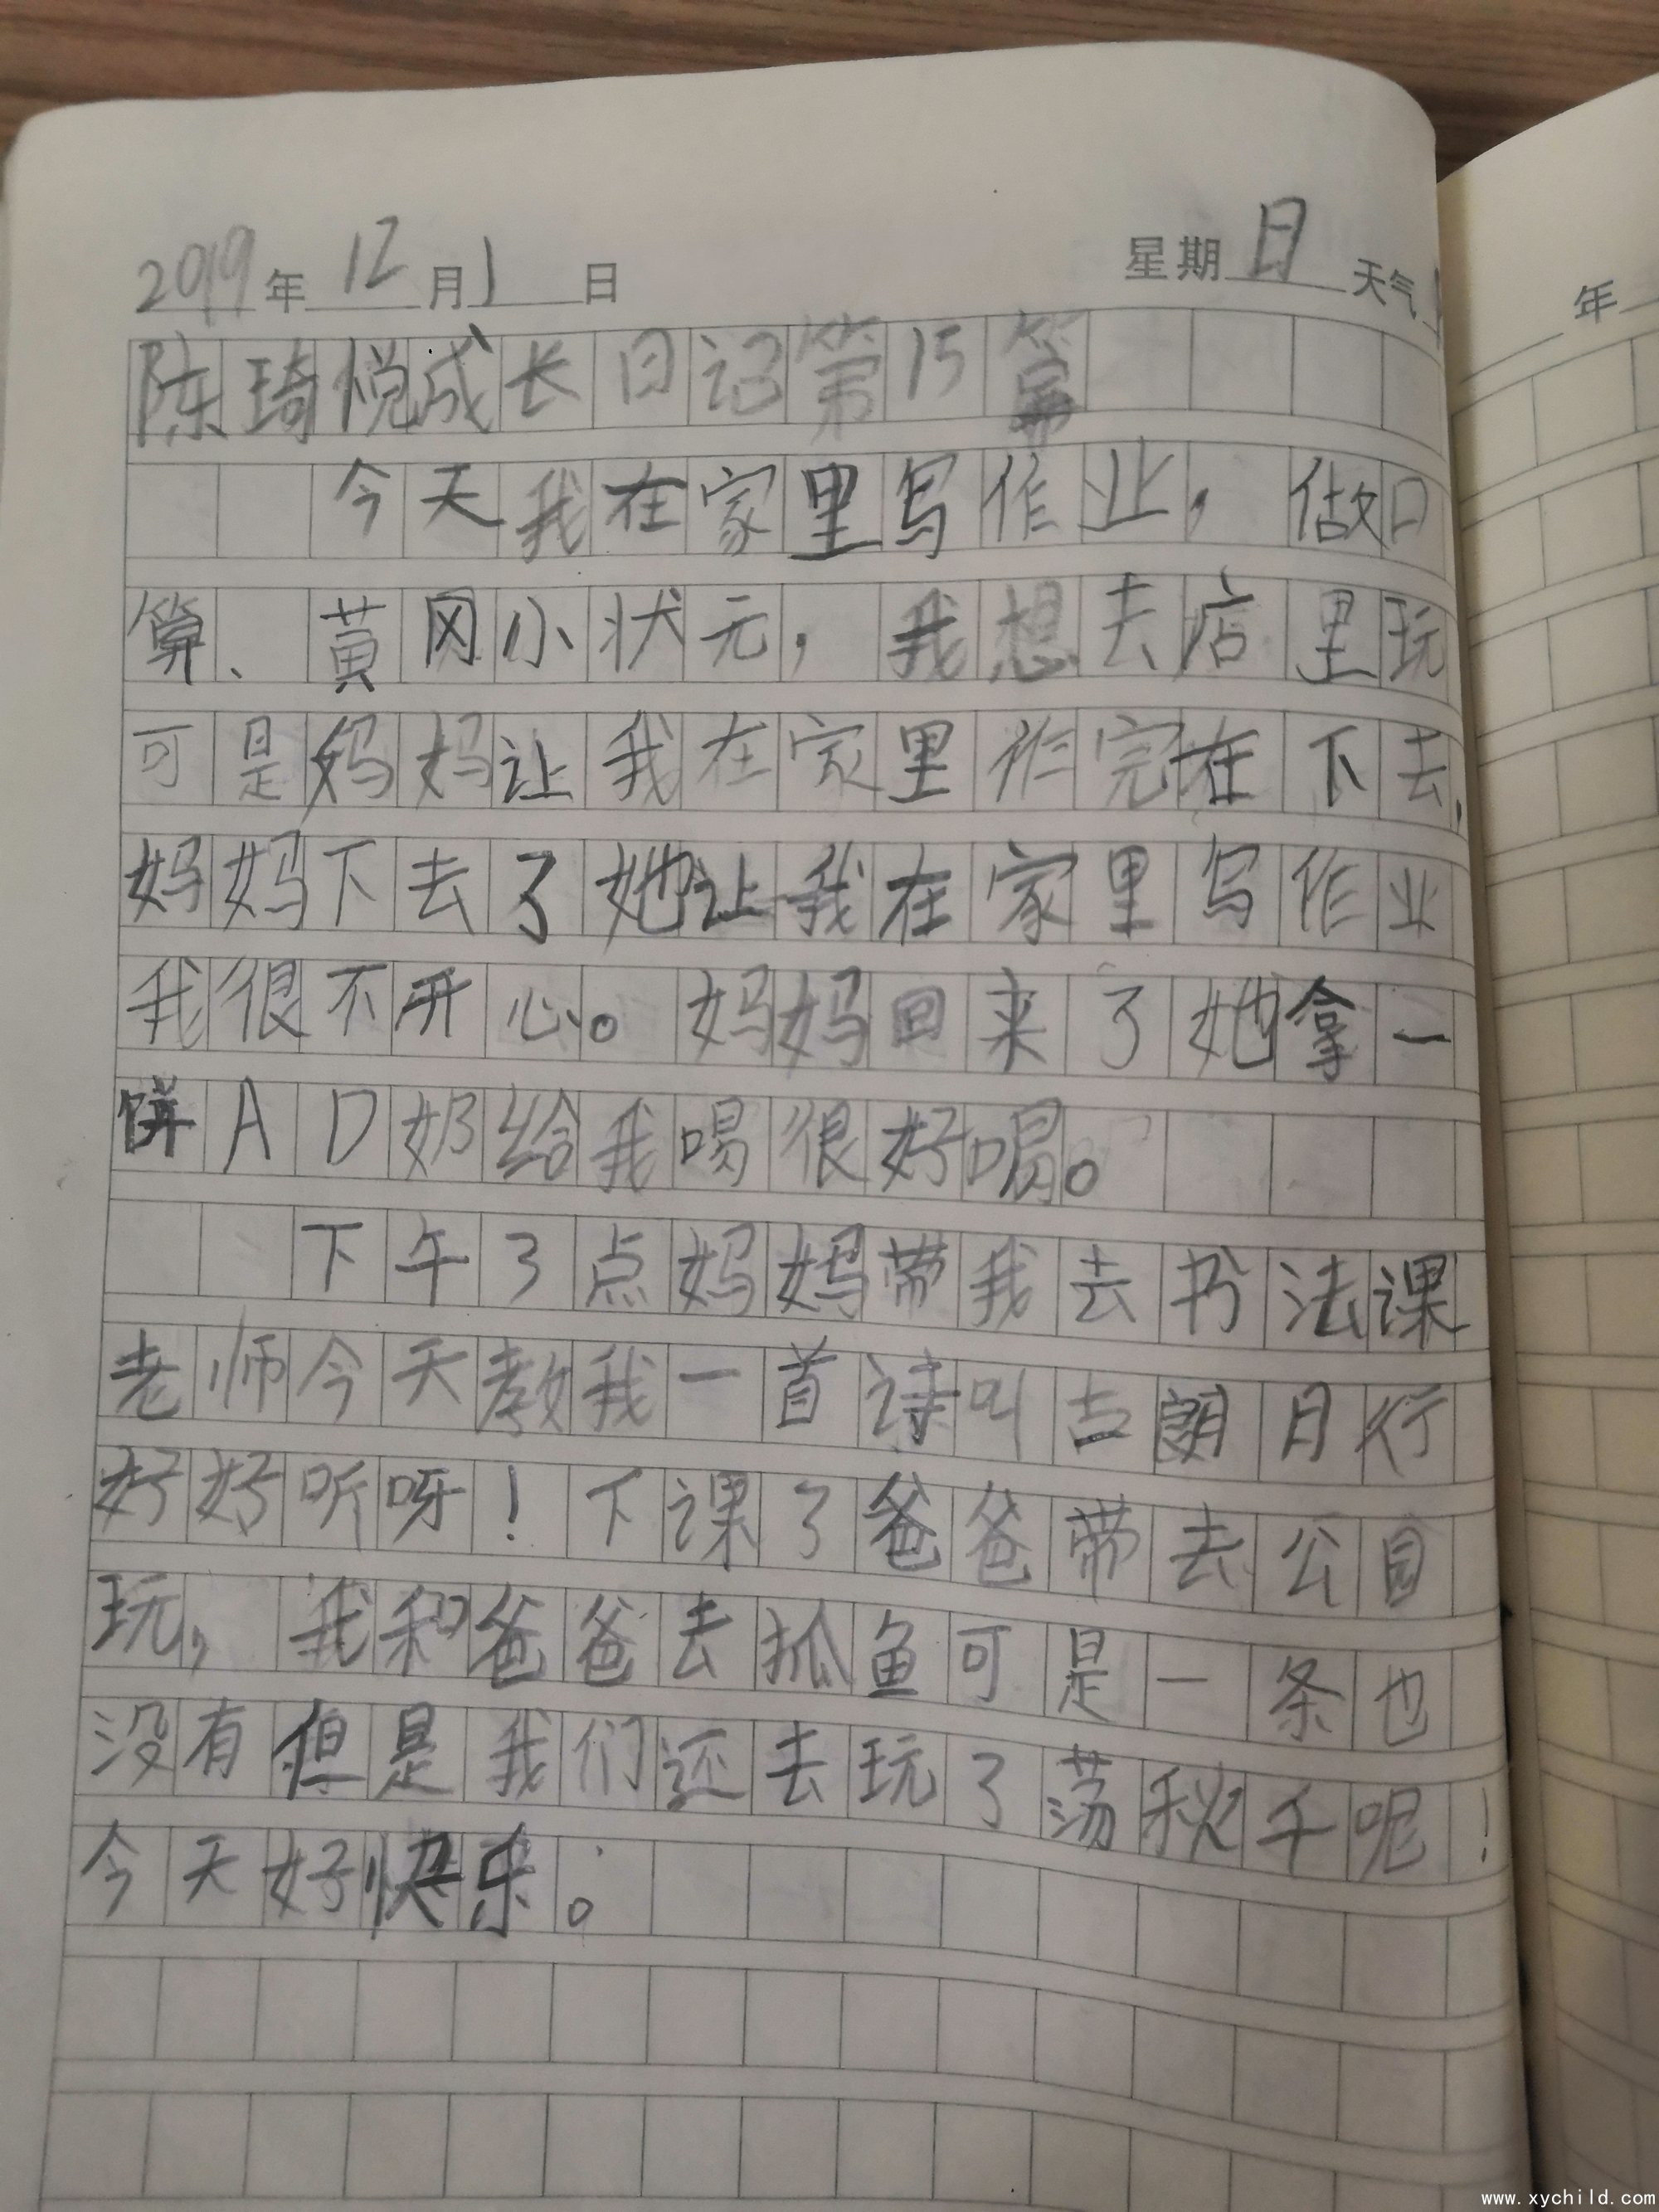 2019年12月1日 星期日天气
年
陈琦悦成长日记第15篇
今天我在家里写作业，做口
算、黄冈小状元，我想去店里玩
可是妈妈让我在家里作完在下去，
妈妈下去了她让我在家里写作业
我很不开心。妈妈回来了她拿一
饼AD奶给我喝很好喝。
下午3点妈妈带我去书法课
老师今天教我一首诗叫古朗月行
好好听呀！下课了爸爸带去公园
玩，我和爸爸去抓鱼可是一条也
没有但是我们还去玩了荡秋千呢！
今天好快乐。
www.xychild.com